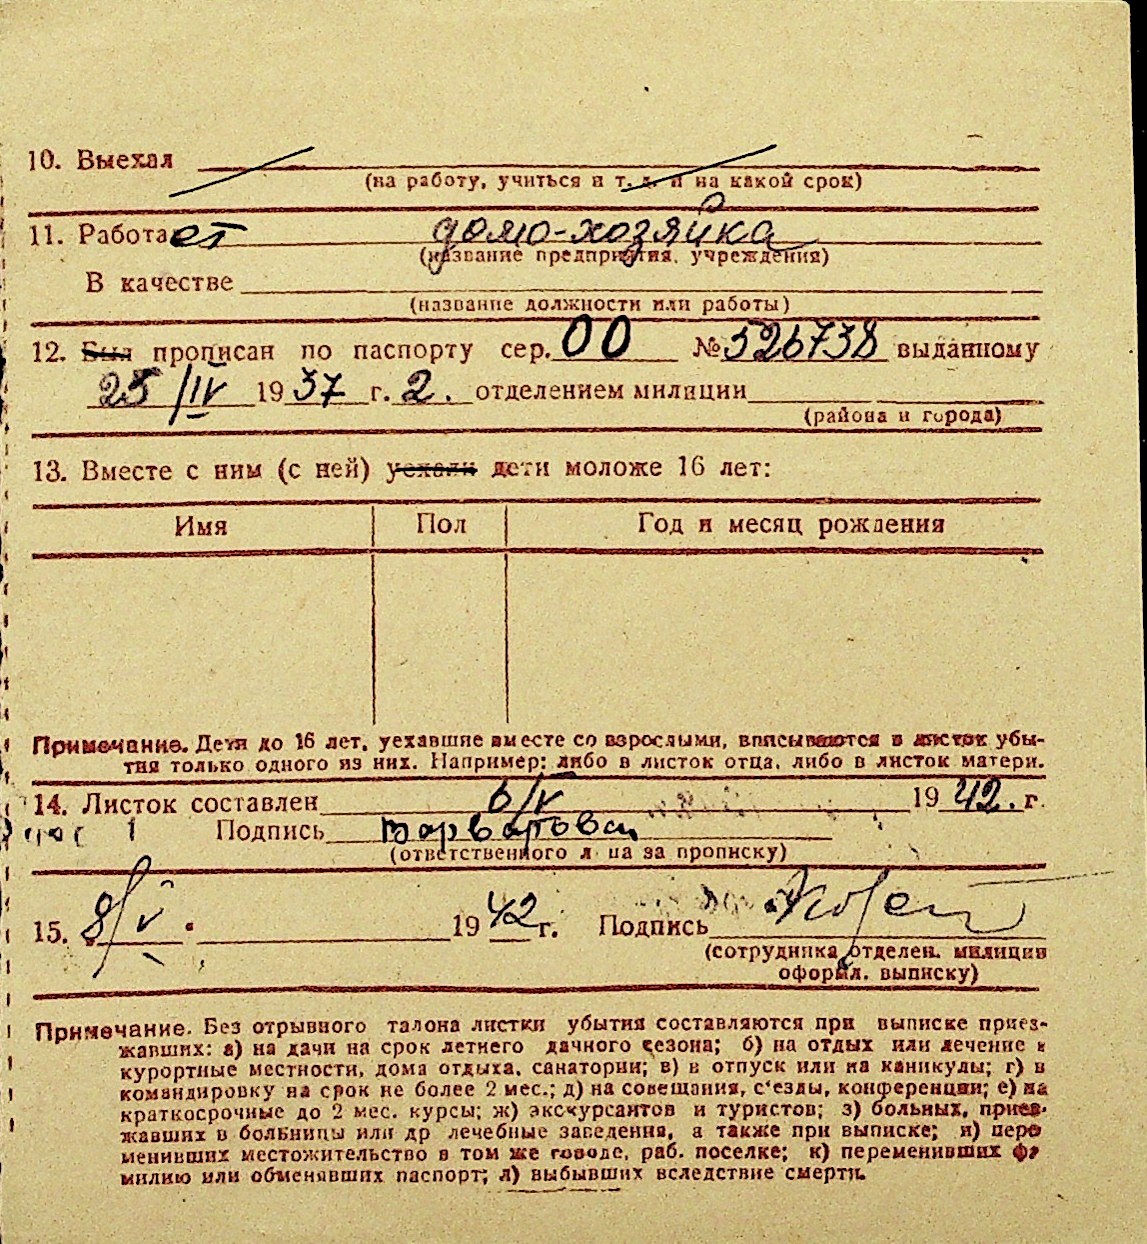 10. Выехал
(на работу, учиться и т. д. и на какой срок)
11. Работает домо-хозяйка
(название предприятия, учреждения)
В качестве
(название должности или работы)
12. Был прописан по паспорту сер. 00 № 526738 выданному
25/IV 1937 г. 2. отделением милиции
(района и города)
13. Вместе с ним (с ней) уехали дети моложе 16 лет:
Имя Пол Год и месяц рождения
Примечание. Дети до 16 лет, уехавшие вместе со взрослыми, вписываются в листок убы-
тия только одного из них. Например: либо в листок отца, либо в листок матери.
14. Листок составлен 6/V 1942. г.
Подпись
(ответственного лица за прописку)
15. 8/V. 1942 г. Подпись
(сотрудника отделен. милиции
оформл. выписку)
Примечание. Без отрывного талона листки убытия составляются при выписке приез-
жавших: а) на дачи на срок летнего дачного сезона; б) на отдых или лечение в
курортные местности, дома отдыха, санатории; в) в отпуск или на каникулы; г) в
командировку на срок не более 2 мес.; д) на совещания, с'езды, конференции; е) на
краткосрочные до 2 мес. курсы; ж) экскурсантов и туристов; з) больных, приез-
жавших в больницы или др лечебные заведения, а также при выписке; и) пере
менивших местожительство в том же городе, раб. поселке; к) переменивших фа
милию или обменявших паспорт; л) выбывших вследствие смерти.